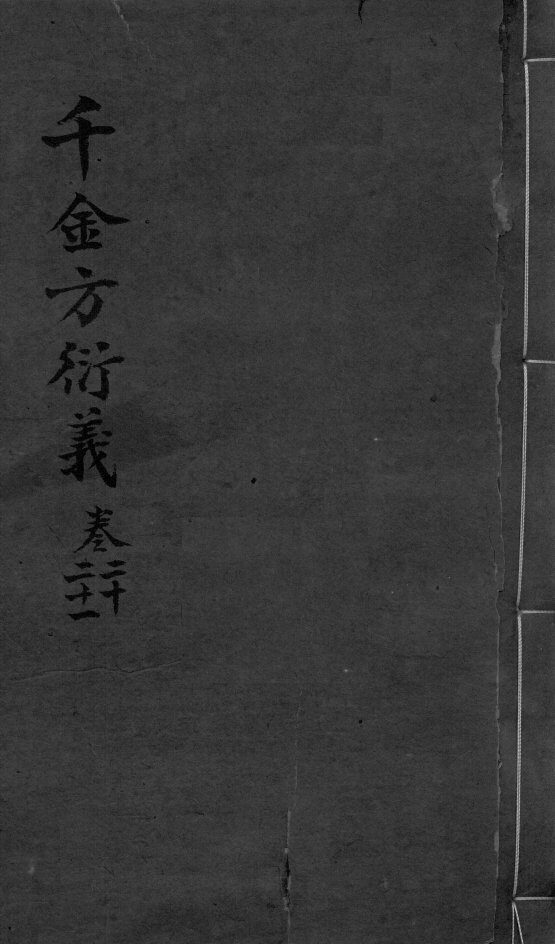 千金方衍義 卷
二十
二十一